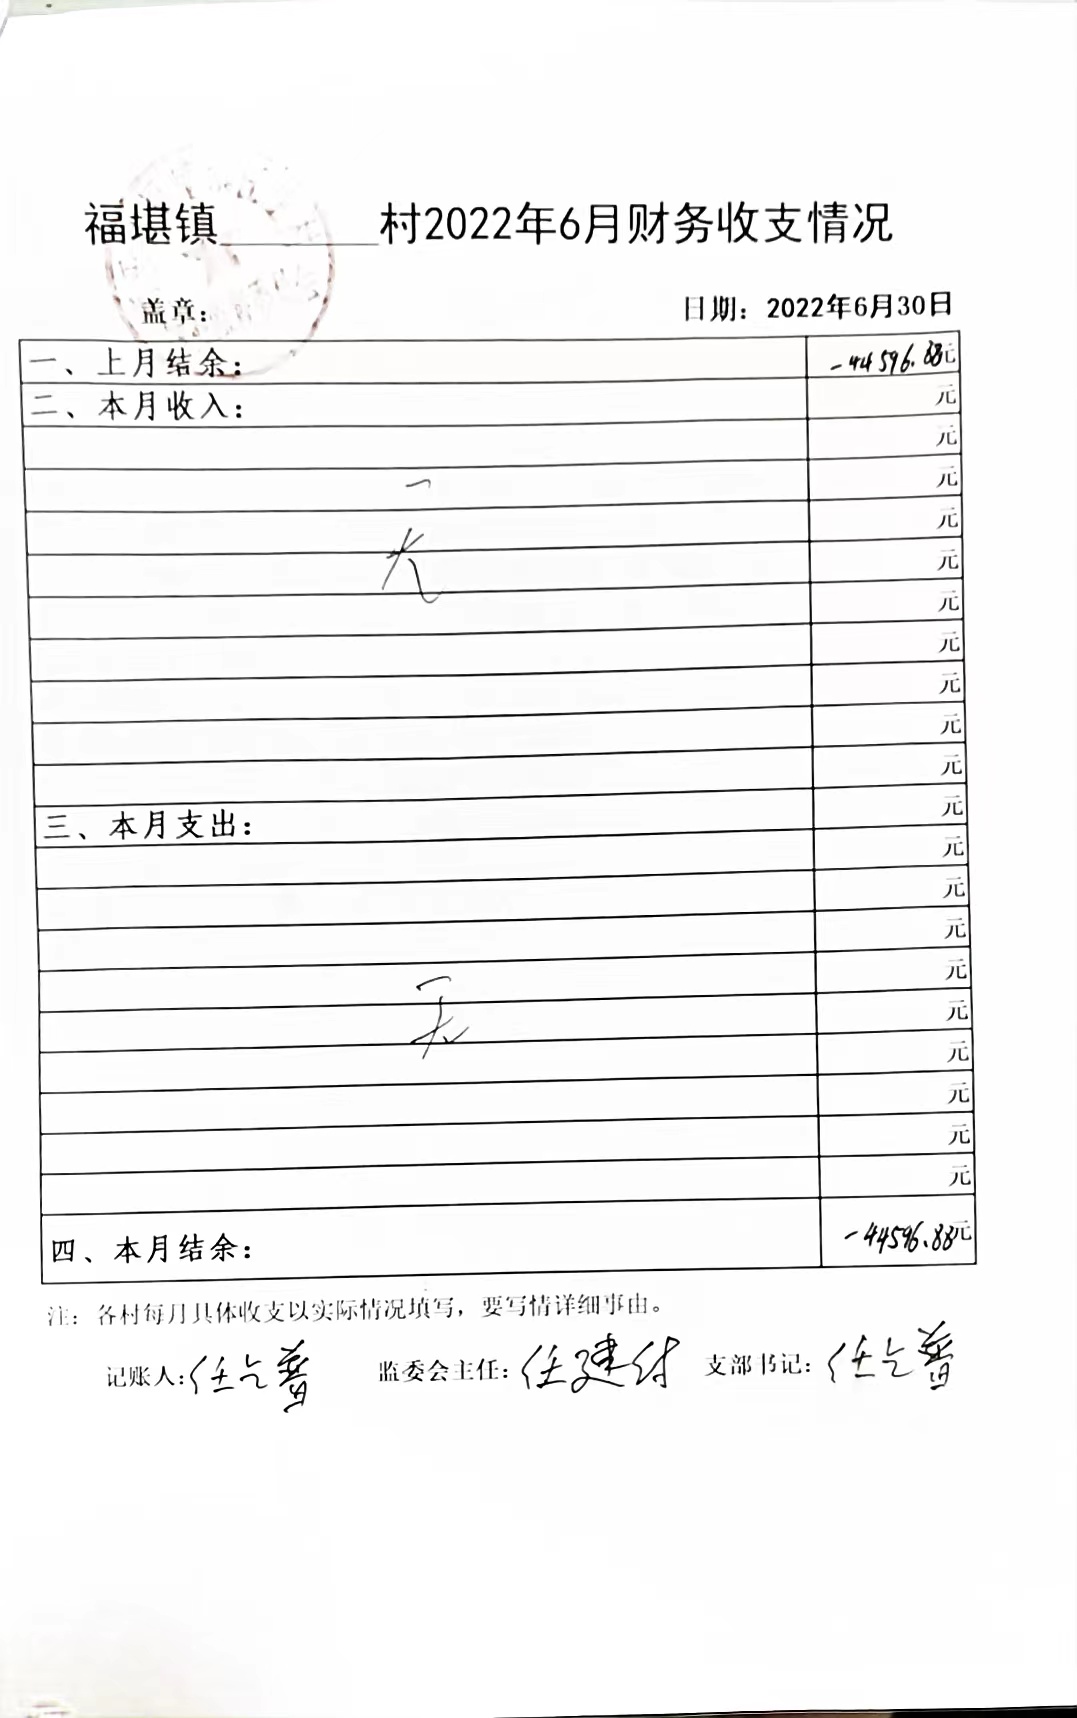 福堪镇______村2022年6月财务收支情况
盖章： 日期：2022年6月30日
一、上月结余： -44596.88元
二、本月收入： 元
元
元
元
元
元
元
元
元
元
三、本月支出： 元
元
元
元
元
元
元
元
元
元
四、本月结余： -44596.88元
注：各村每月具体收支以实际情况填写，要写情详细事由。
记账人： 监委会主任：任建付 支部书记：